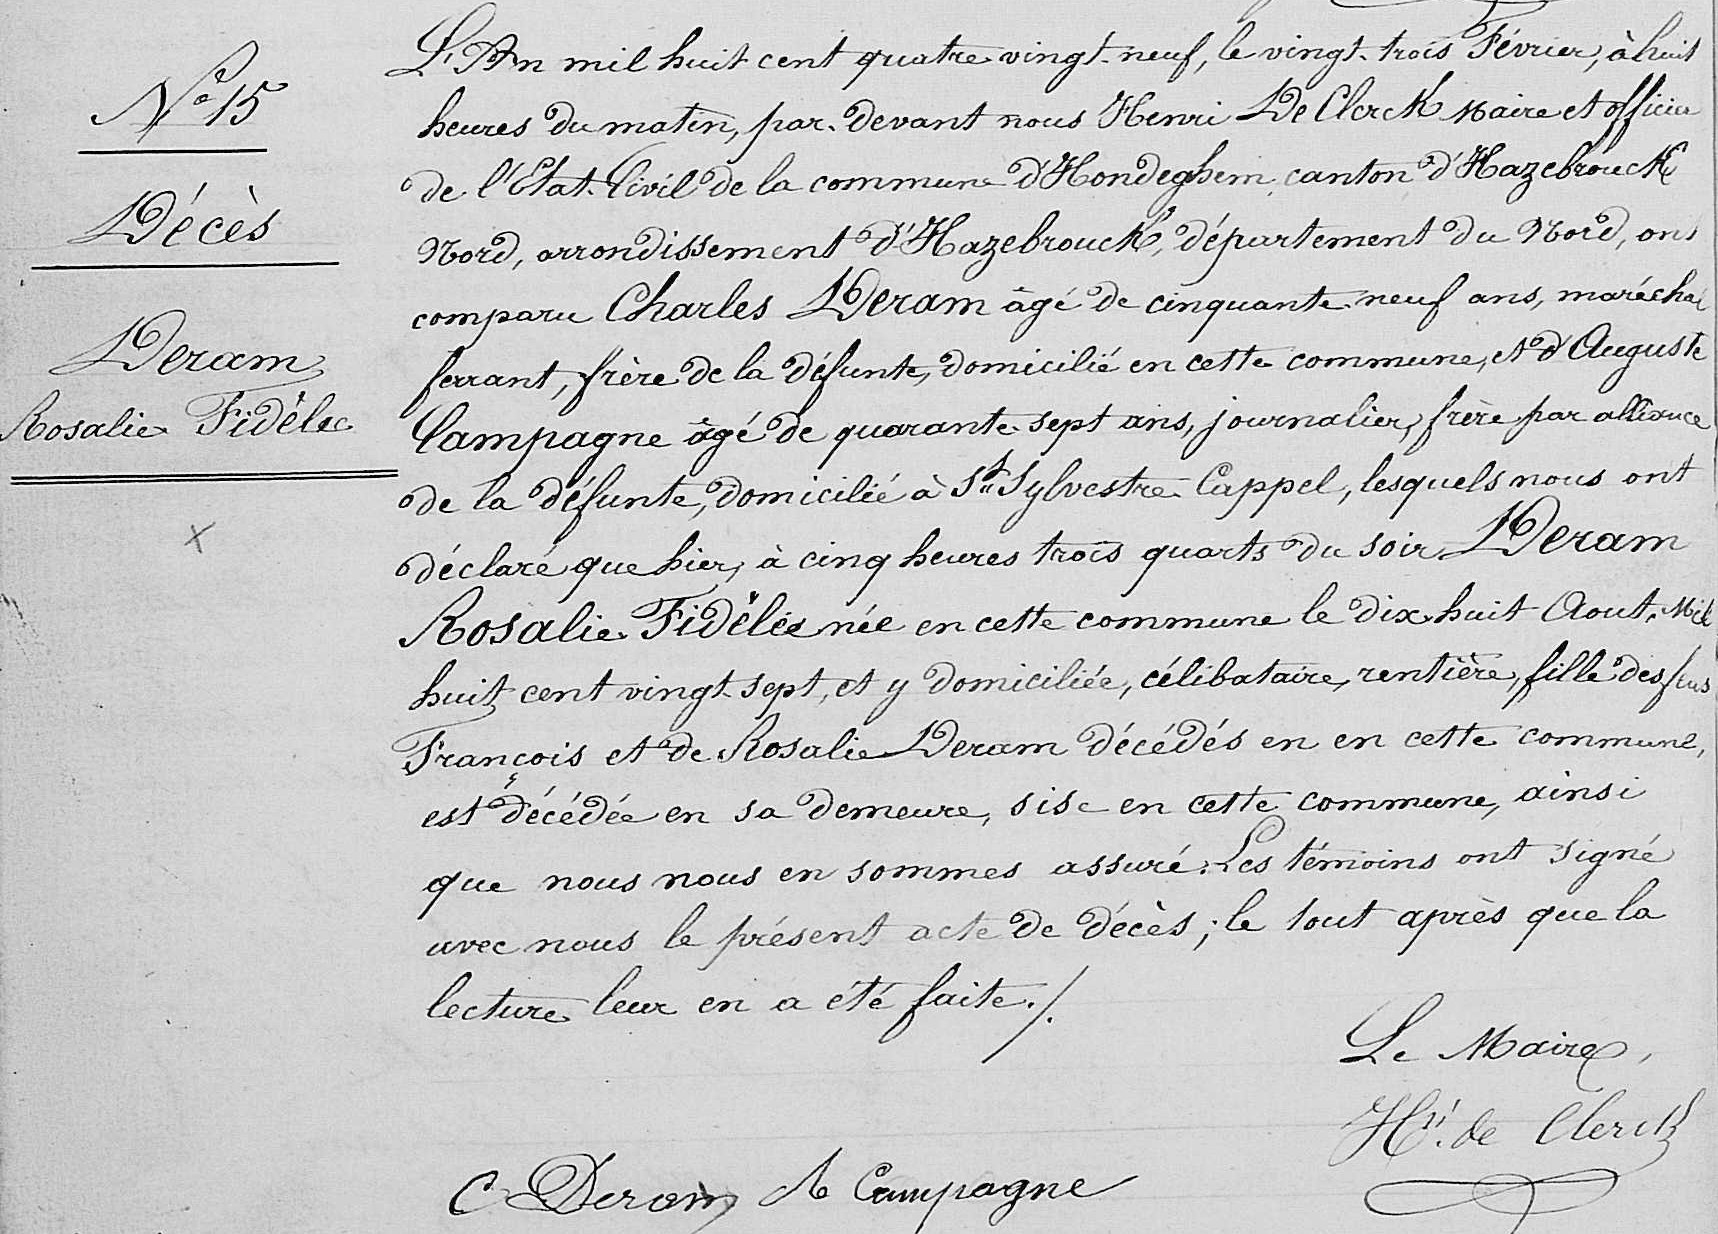 N° 15
Décès
Deram
Rosalie Fidèle
L'An mil huit cent quatre vingt-neuf, le vingt-trois Février, à huit
heures du matin, par-devant nous Henri De Clerck Maire et officier
de l'Etat-Civil de la commune d'Hondeghem, canton d'Hazebrouck
Nord, arrondissement d'Hazebrouck, département du Nord, ont
comparu Charles Deram âgé de cinquante-neuf ans, maréchal
ferrant, frère de la défunte, domicilié en cette commune, et d'Auguste
Campagne âgé de quarante-sept ans, journalier, frère par alliance
de la défunte, domicilié à St Sylvestre-Cappel, lesquels nous ont
déclaré que hier, à cinq heures trois quarts du soir Deram
Rosalie Fidèle née en cette commune le dix-huit Aout, Mil
huit cent vingt-sept, et y domiciliée, célibataire, rentière, fille des feus
François et de Rosalie Deram décédés en en cette commune,
est décédée en sa demeure, sise en cette commune, ainsi
que nous nous en sommes assuré. Les témoins ont signé
avec nous le présent acte de décès; le tout après que la
lecture leur en a été faite./.
Le Maire,
Hri. de Clerck
C Deram A Campagne